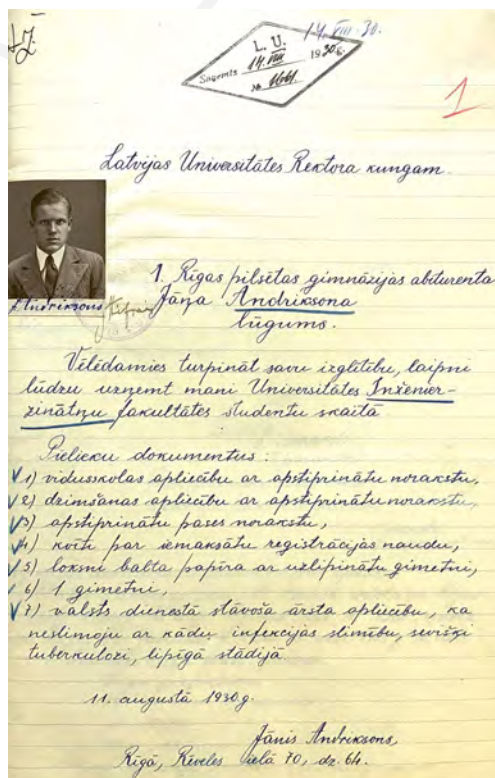 14. VIII 30.
L. U.
Saņemts 14. VIII 1930 g.
№
1
Latvijas Universitātes Rektora kungam.
1. Rīgas pilsētas ģimnāzijas abiturienta
Jāņa Andriksona
lūgums.
J. Andriksons
Vēlēdamies turpināt savu izglītību, laipni
lūdzu uzņemt mani Universitātes Inženier-
zinātņu fakultātes studentu skaitā
Pielieku dokumentus:
1) vidusskolas apliecību ar apstiprinātu norakstu,
2) dzimšanas apliecību ar apstiprinātu norakstu,
3) apstiprinātu pases norakstu,
4) kvīti par iemaksātu reģistrācijas naudu,
5) loksni balta papīra ar uzlipinātu ģīmetni,
6) 1 ģīmetni,
7) valsts dienestā stāvoša ārsta apliecību, ka
neslimoju ar kādu infekcijas slimību, sevišķi
tuberkulozi, lipīgā stādijā.
11. augustā 1930.g.
Jānis Andriksons,
Rīgā, Rēveles ielā 70, dz. 64.